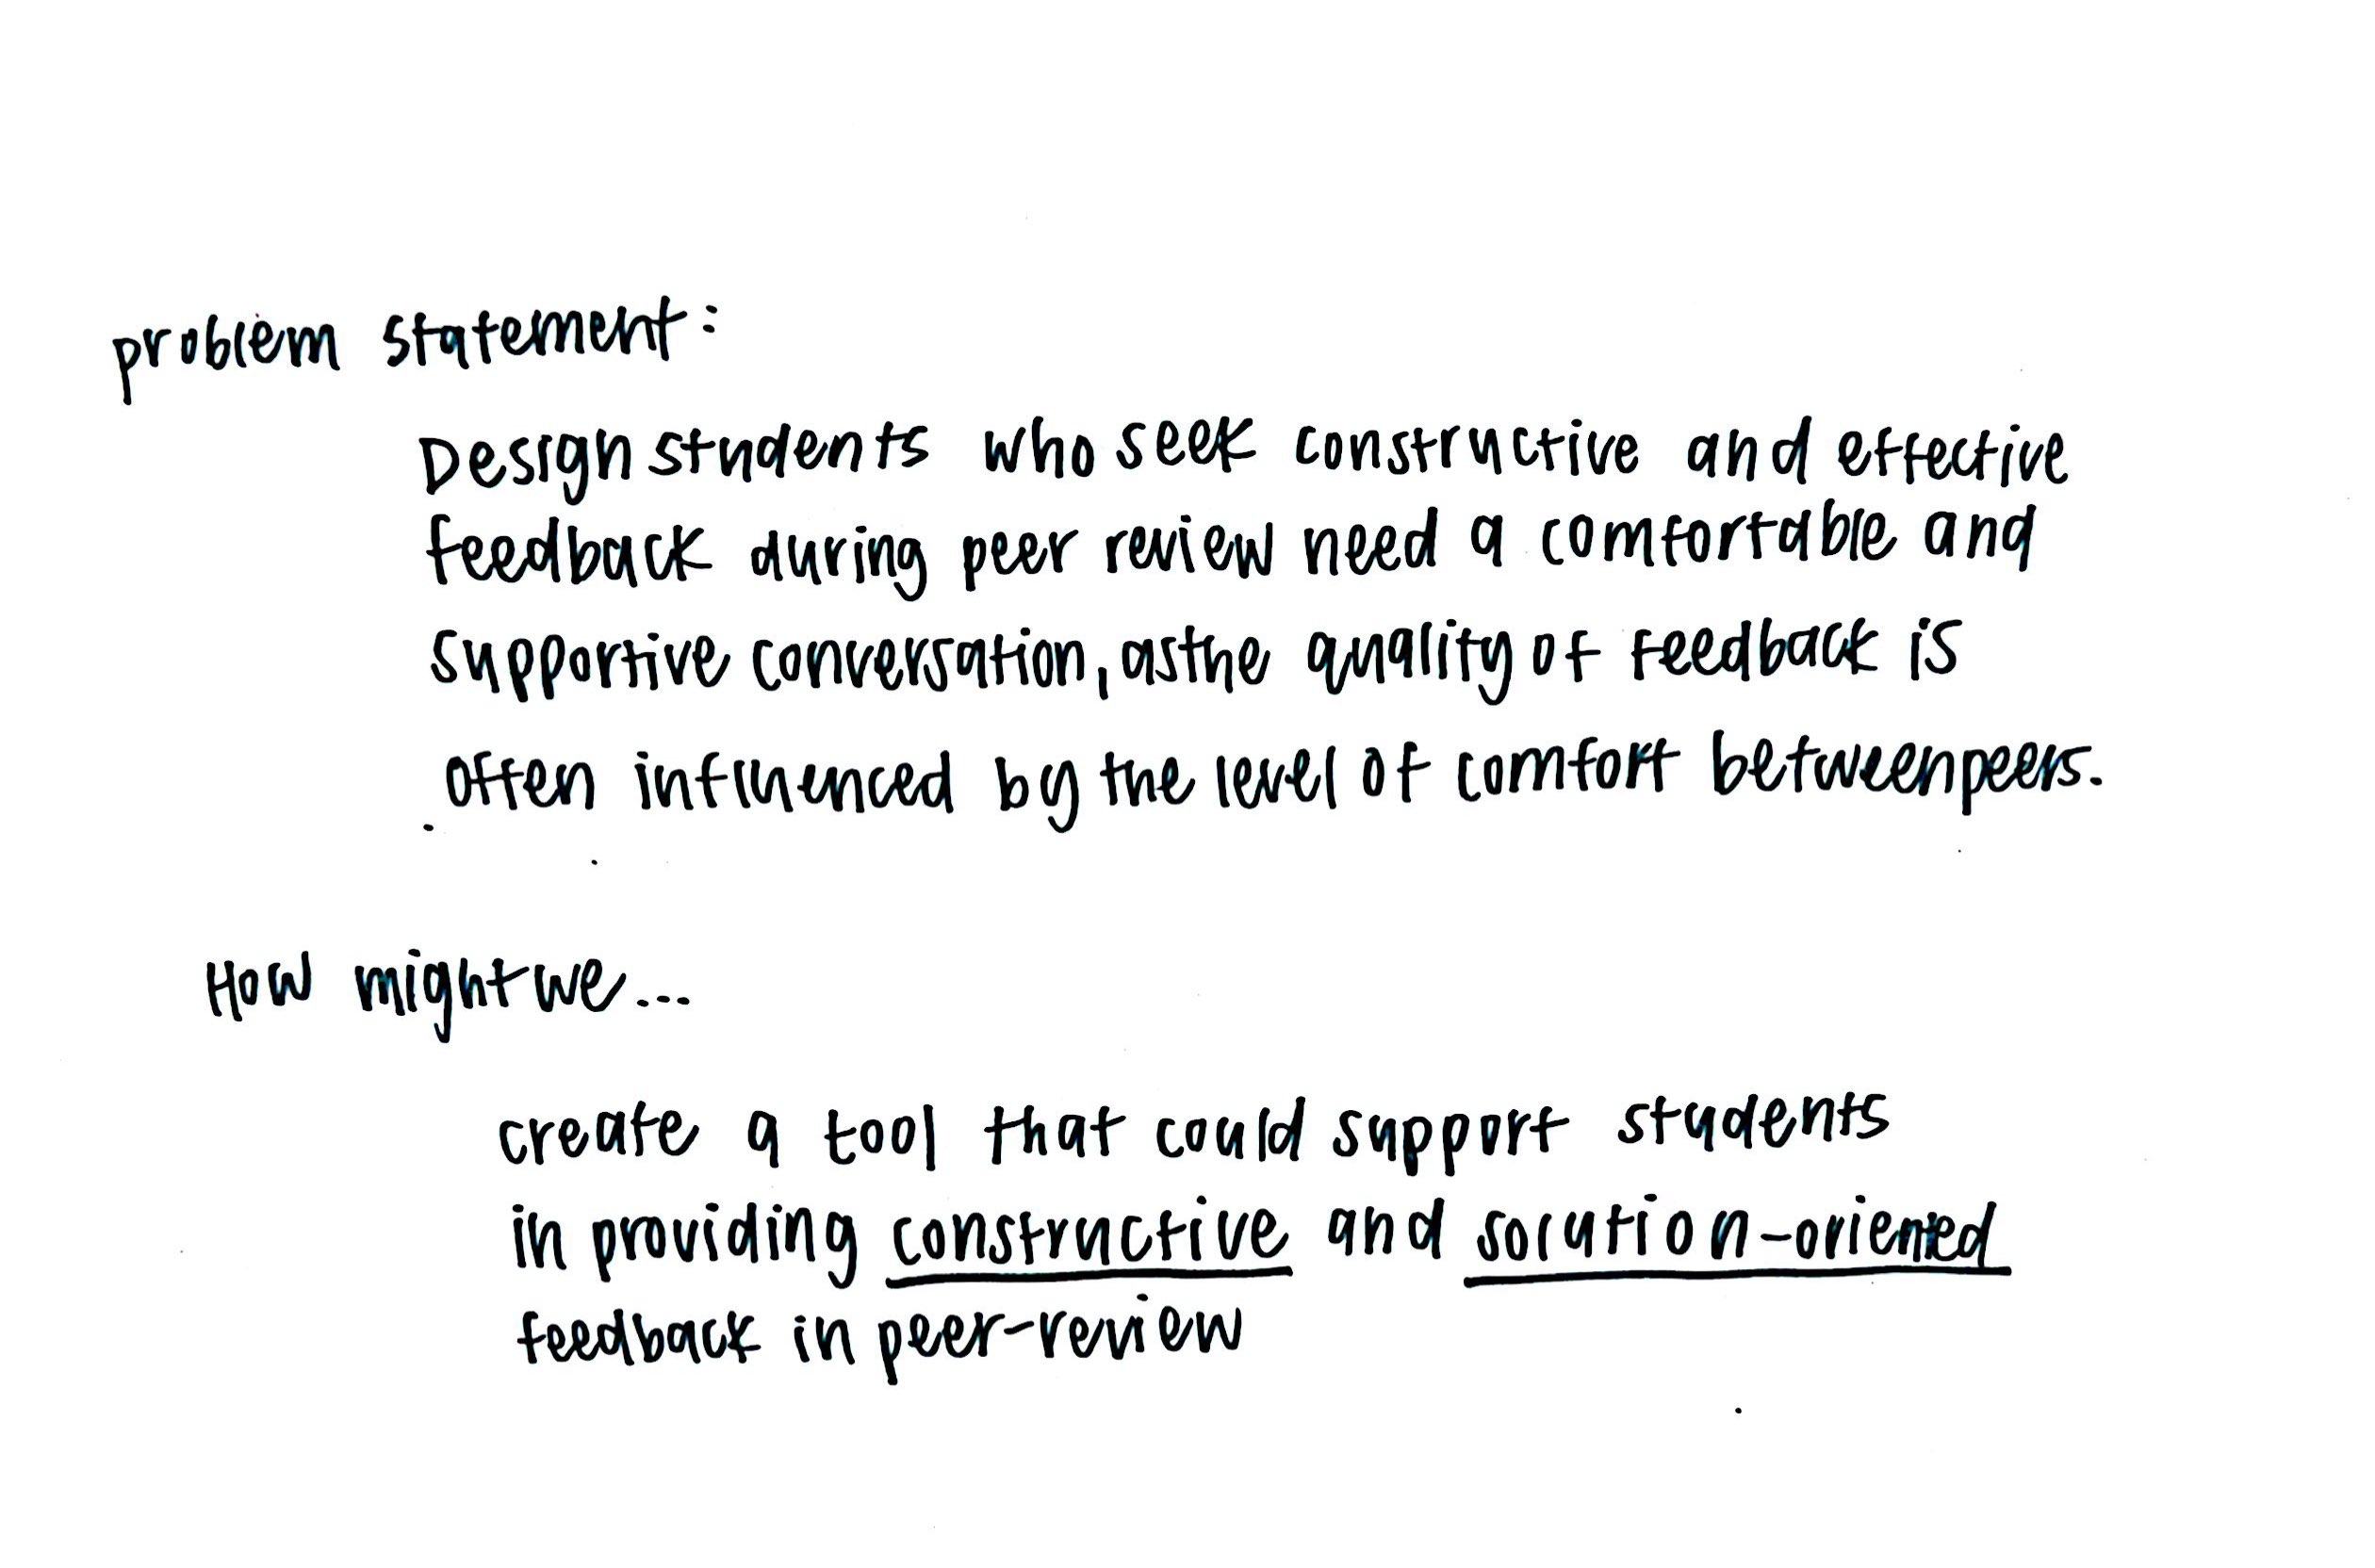 problem statement:
Design students who seek constructive and effective
feedback during peer review need a comfortable and
supportive conversation, as the quality of feedback is
often influenced by the level of comfort between peers.
How might we...
create a tool that could support students
in providing constructive and solution-oriented
feedback in peer-review